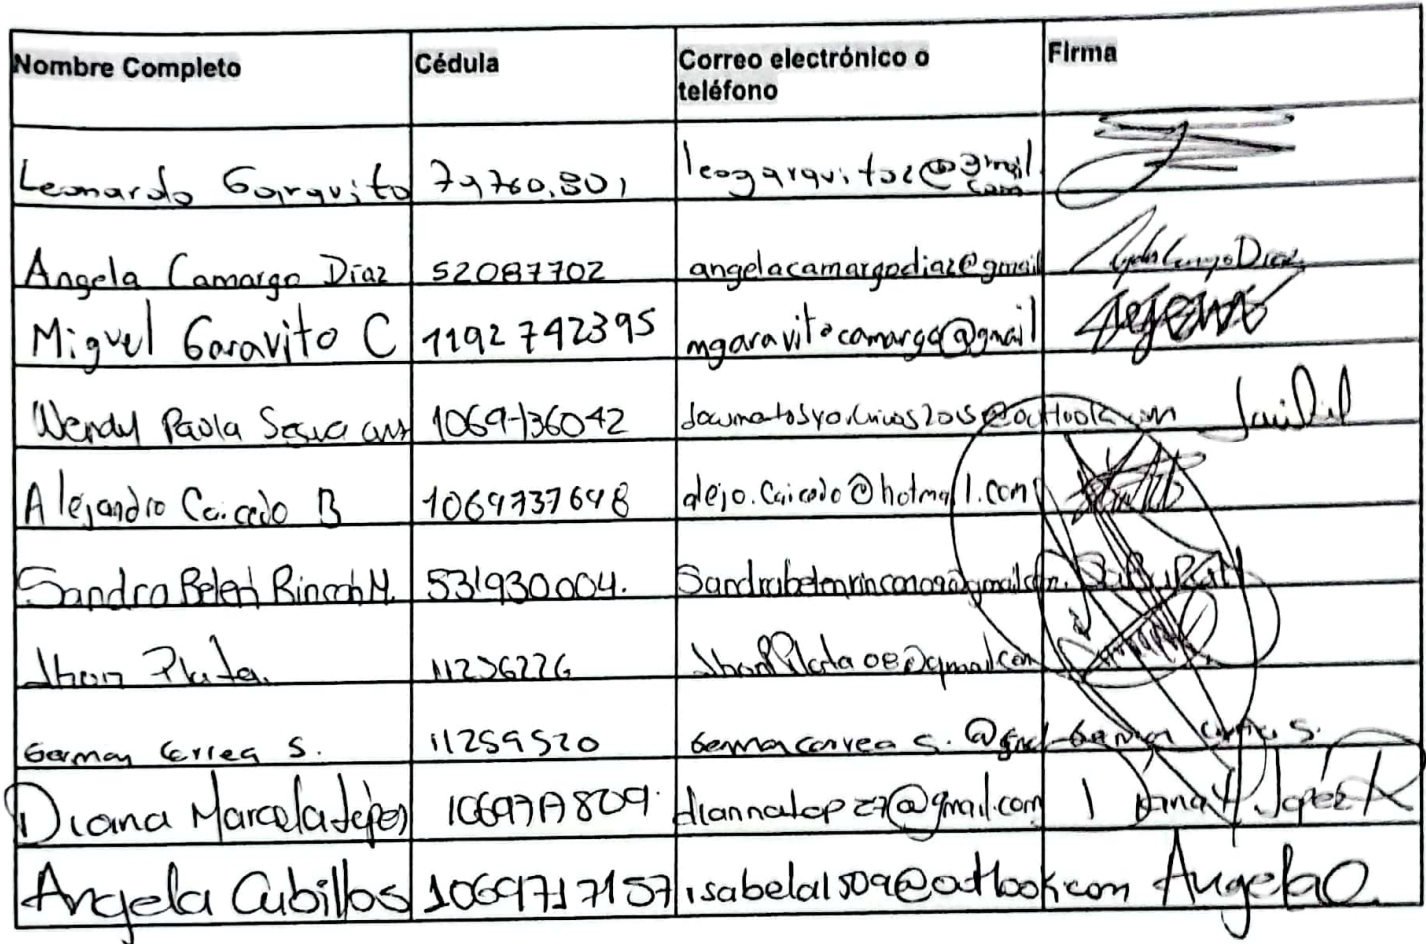 Nombre Completo Cédula Correo electrónico o teléfono Firma
Leonardo Garavito 79760.801 leogaravitoc@gmail.com
Angela Camargo Diaz 52087702 angelacamargodiaz@gmail Angela Camargo Diaz
Miguel Garavito C 1192742395 mgaravitocamargo@gmail
Wendy Paola 1069736042
Alejandro Caicedo B 1069737648 alejo.caicedo@hotmail.com
Sandra Belen Rincon M. 531930004. Sandrabelenrincon09@gmail.com
Jhon Plata. 11256226 JhonPlata08@gmail.com
German Correa S. 11259520 Germancorrea S. @gmail German Correa S.
Diana Marcela López diannalop27@gmail.com Diana M. Lopez R
Angela Cubillos 1069717157 isabela1509@outlook.com Angela C.